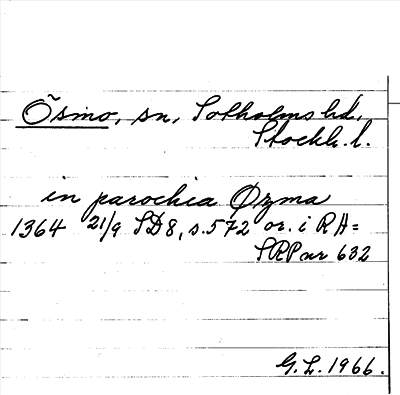 Ösmo, sn, Sotholms hd,
Stockh. l.
in parochia Øzma
1364 21/9 SD 8, s. 572 or. i RA =
SRP nr 632
G. L. 1966.